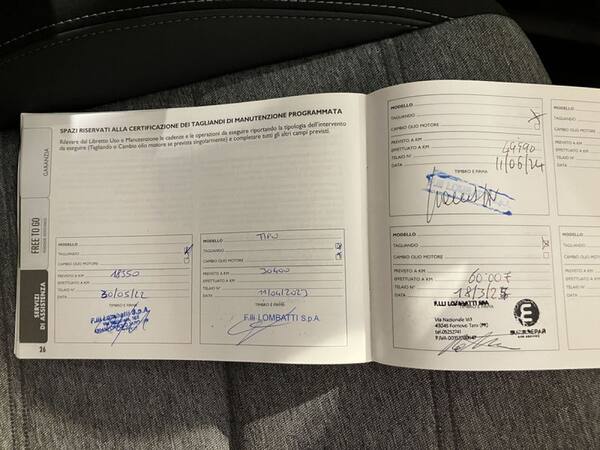 SPAZI RISERVATI ALLA CERTIFICAZIONE DEI TAGLIANDI DI MANUTENZIONE PROGRAMMATA
Rilevare dal Libretto Uso e Manutenzione le cadenze e le operazioni da eseguire riportando la tipologia dell'intervento
da eseguire (Tagliando o Cambio olio motore se prevista singolarmente) e completare tutti gli altri campi previsti.
GARANZIA
FREE TO GO
SERVIZI
DI ASSISTENZA
26
MODELLO
TAGLIANDO
CAMBIO OLIO MOTORE
PREVISTO A KM
EFFETTUATO A KM 18350
TELAIO N°
DATA 30/05/22
TIMBRO E FIRMA
F.lli LOMBATTI S.p.A.
MODELLO TIPO
TAGLIANDO
CAMBIO OLIO MOTORE
PREVISTO A KM
EFFETTUATO A KM 30400
TELAIO N°
DATA 11/04/2023
TIMBRO E FIRMA
F.lli LOMBATTI S.p.A.
MODELLO
TAGLIANDO
CAMBIO OLIO MOTORE
PREVISTO A KM
EFFETTUATO A KM 49990
TELAIO N° 11/06/24
DATA
TIMBRO E FIRMA
F.lli LOMBATTI
MODELLO
TAGLIANDO
CAMBIO OLIO MOTORE
PREVISTO A KM
EFFETTUATO A KM 60.007
TELAIO N°
DATA 18/3/25
TIMBRO E FIRMA
F.LLI LOMBATTI SPA
Via Nazionale 163
43045 Fornovo Taro (PR)